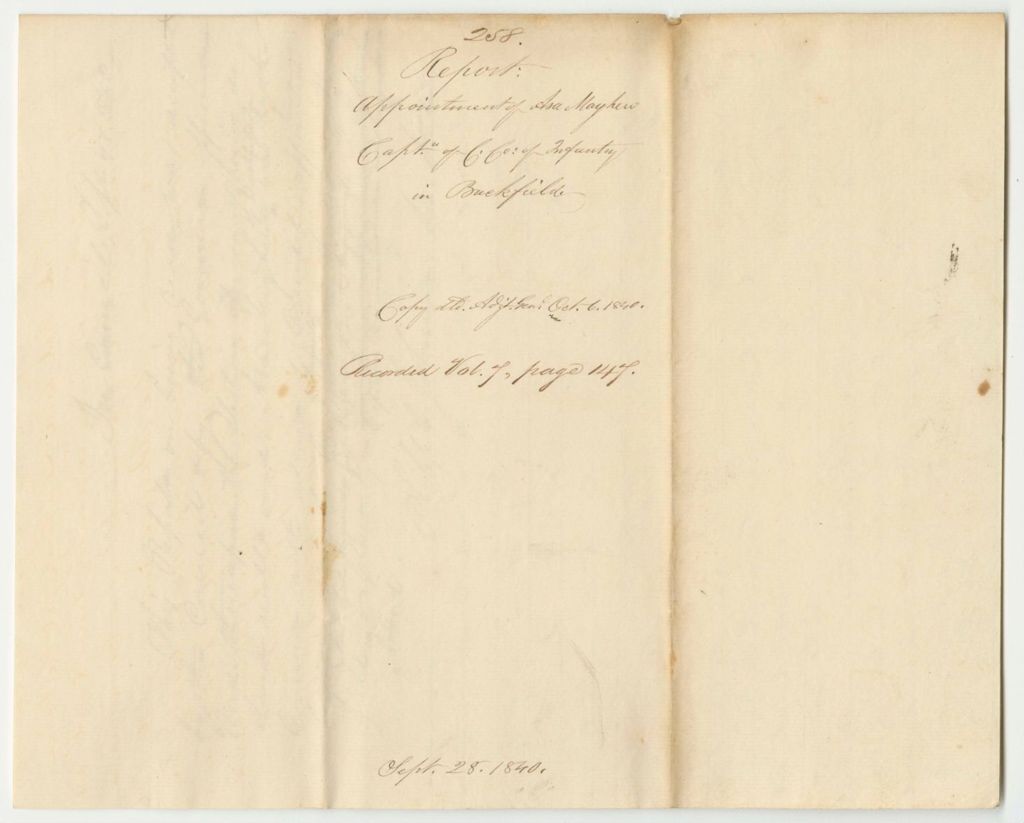 258.
Report:
Appointment of Asa Mayhew
Capt.n of C. Co: of Infantry
in Buckfield
Copy to Adjt. Genl. Oct. 6. 1840.
Recorded Vol. 7, page 147.
Sept. 28. 1840.